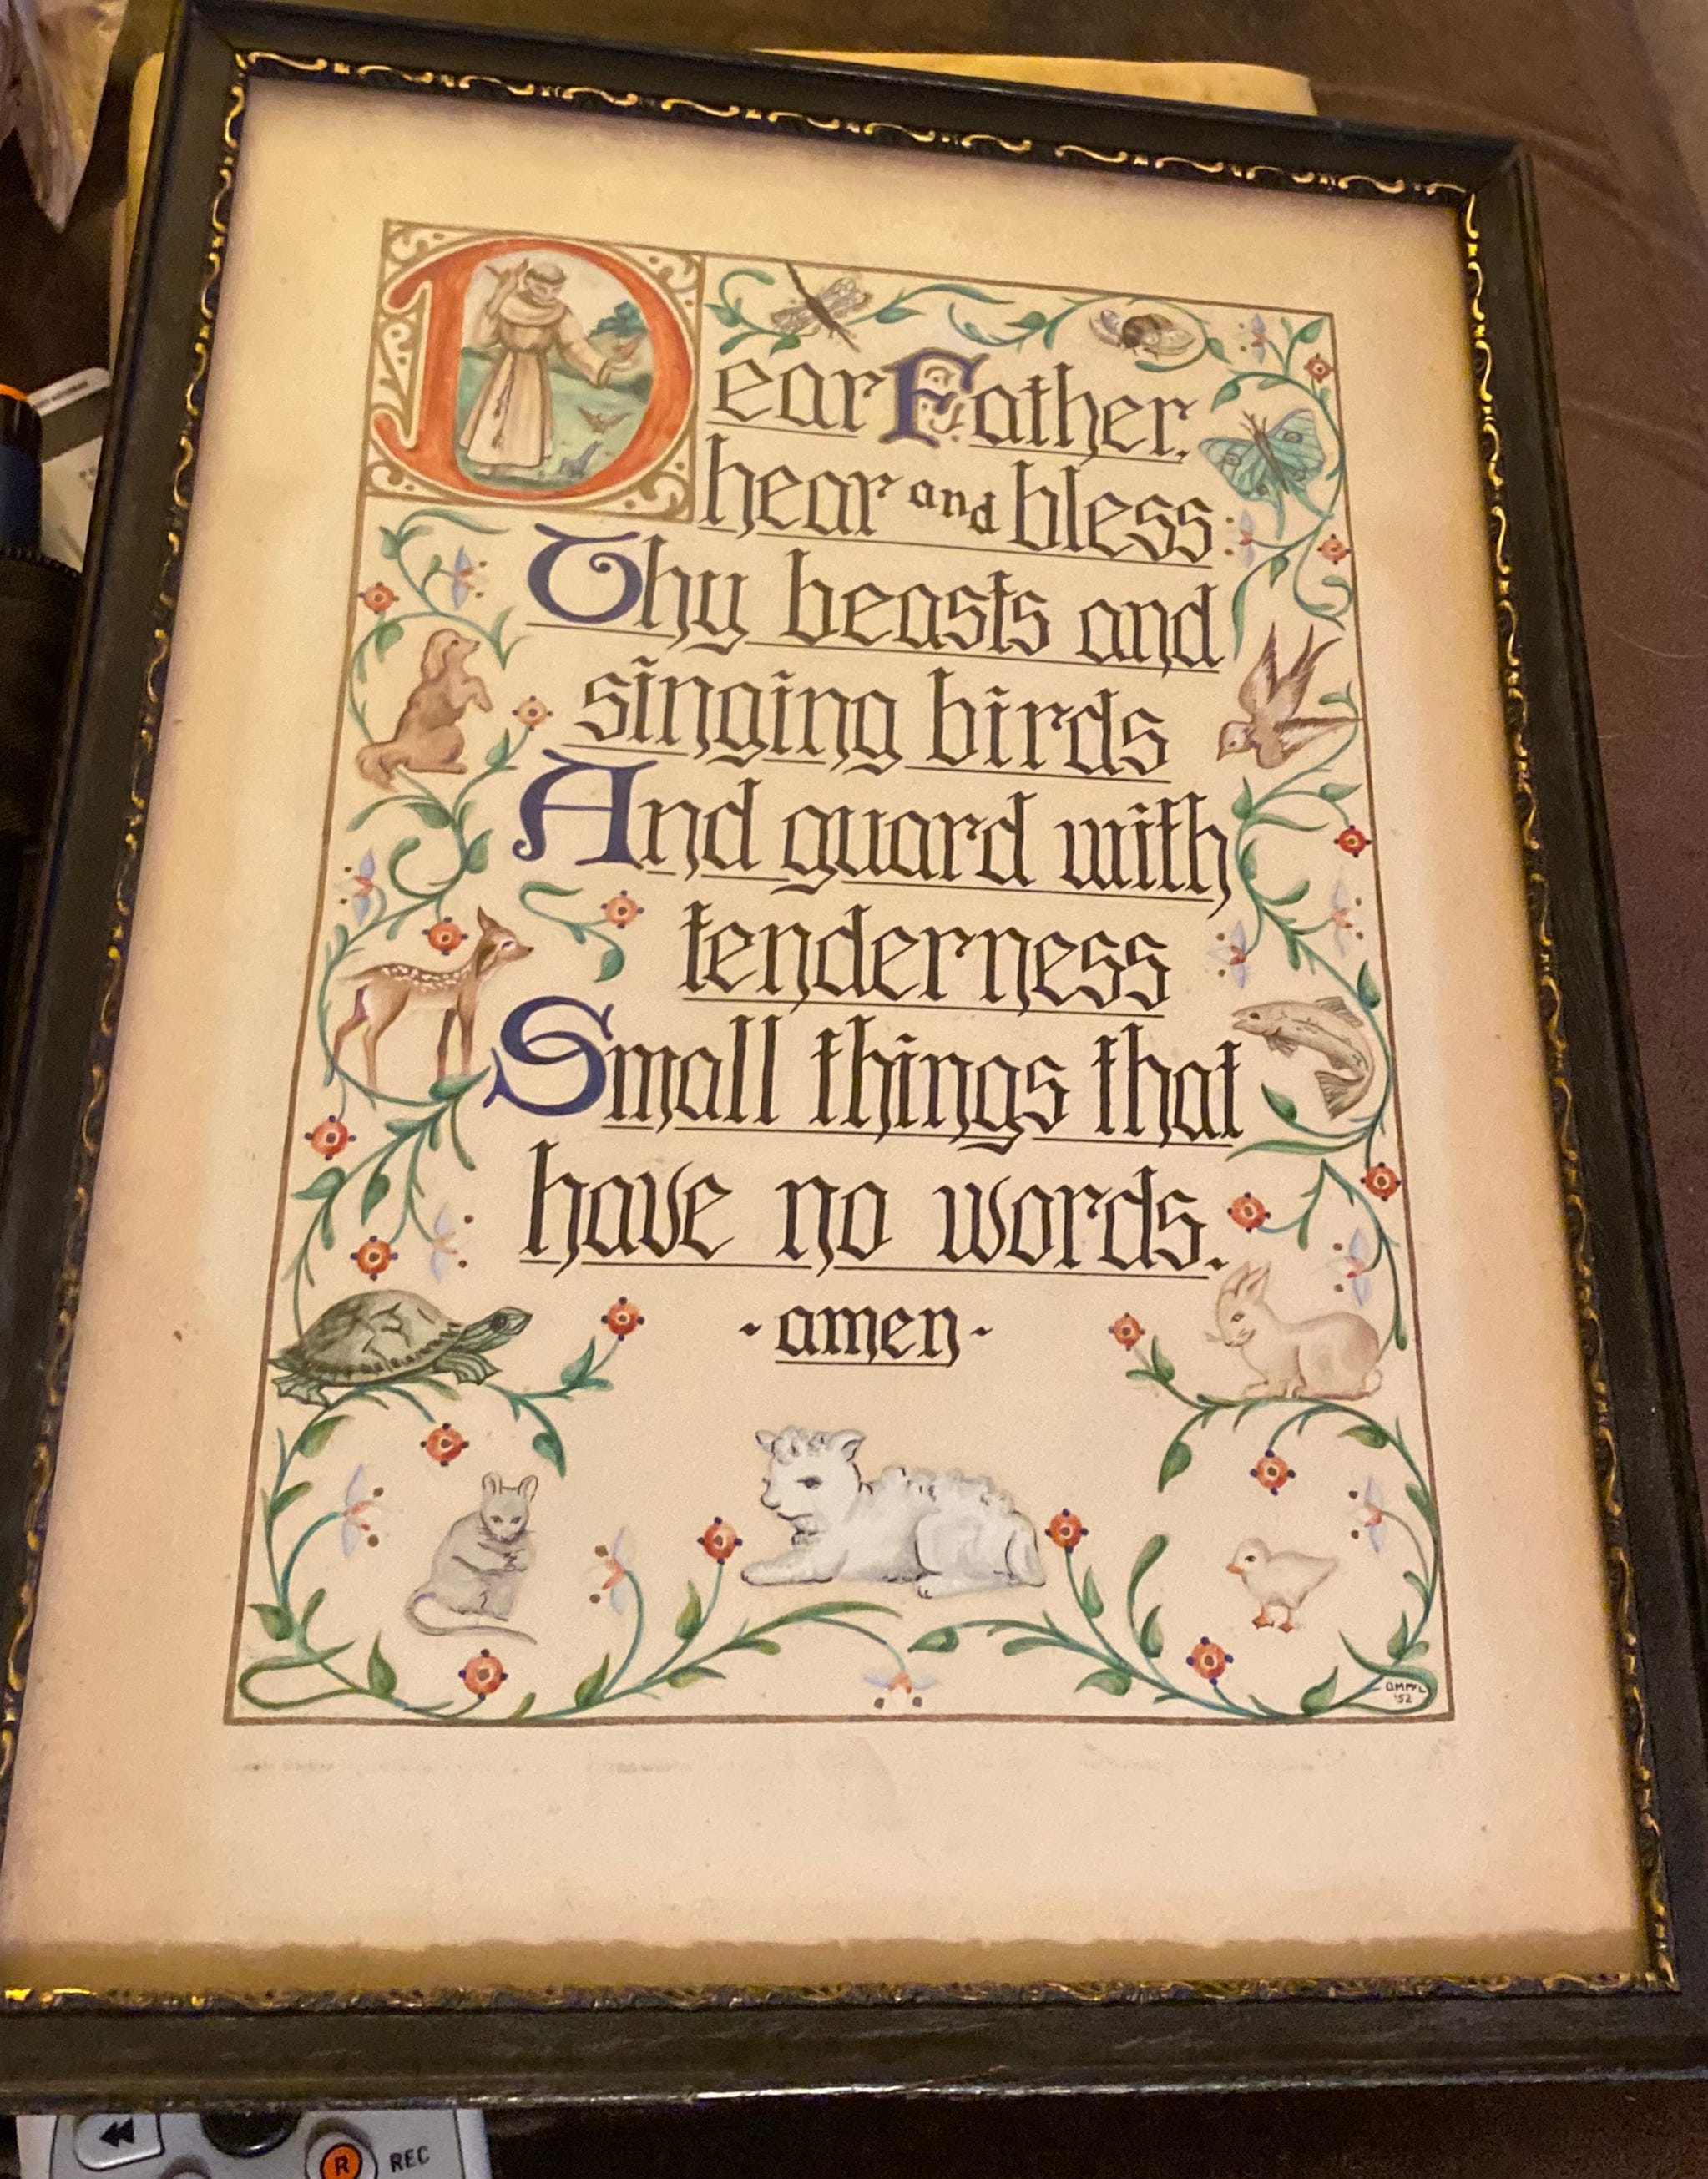 Dear Father,
hear and bless
Thy beasts and
singing birds
And guard with
tenderness
Small things that
have no words.
-amen-
'52
R REC